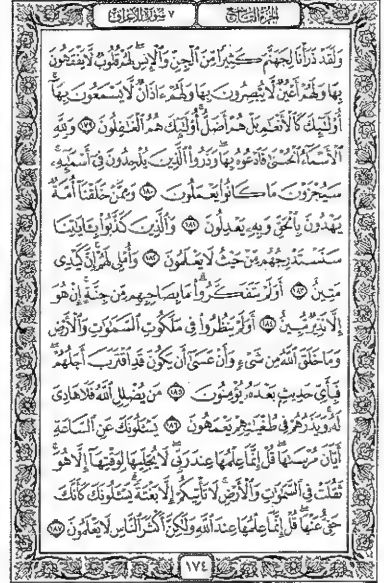 الجزء التاسع
٧ سورة الأعراف
وَلَقَدْ ذَرَأْنَا لِجَهَنَّمَ كَثِيرًا مِّنَ ٱلْجِنِّ وَٱلْإِنسِ لَهُمْ قُلُوبٌ لَّا يَفْقَهُونَ
بِهَا وَلَهُمْ أَعْيُنٌ لَّا يُبْصِرُونَ بِهَا وَلَهُمْ ءَاذَانٌ لَّا يَسْمَعُونَ بِهَآ
أُو۟لَٰٓئِكَ كَٱلْأَنْعَٰمِ بَلْ هُمْ أَضَلُّ أُو۟لَٰٓئِكَ هُمُ ٱلْغَٰفِلُونَ ١٧٩ وَلِلَّهِ
ٱلْأَسْمَآءُ ٱلْحُسْنَىٰ فَٱدْعُوهُ بِهَا وَذَرُوا۟ ٱلَّذِينَ يُلْحِدُونَ فِىٓ أَسْمَٰٓئِهِۦ
سَيُجْزَوْنَ مَا كَانُوا۟ يَعْمَلُونَ ١٨٠ وَمِمَّنْ خَلَقْنَآ أُمَّةٌ
يَهْدُونَ بِٱلْحَقِّ وَبِهِۦ يَعْدِلُونَ ١٨١ وَٱلَّذِينَ كَذَّبُوا۟ بِـَٔايَٰتِنَا
سَنَسْتَدْرِجُهُم مِّنْ حَيْثُ لَا يَعْلَمُونَ ١٨٢ وَأُمْلِى لَهُمْ إِنَّ كَيْدِى
مَتِينٌ ١٨٣ أَوَلَمْ يَتَفَكَّرُوا۟ مَا بِصَاحِبِهِم مِّن جِنَّةٍ إِنْ هُوَ
إِلَّا نَذِيرٌ مُّبِينٌ ١٨٤ أَوَلَمْ يَنظُرُوا۟ فِى مَلَكُوتِ ٱلسَّمَٰوَٰتِ وَٱلْأَرْضِ
وَمَا خَلَقَ ٱللَّهُ مِن شَىْءٍ وَأَنْ عَسَىٰٓ أَن يَكُونَ قَدِ ٱقْتَرَبَ أَجَلُهُمْ
فَبِأَىِّ حَدِيثٍۭ بَعْدَهُۥ يُؤْمِنُونَ ١٨٥ مَن يُضْلِلِ ٱللَّهُ فَلَا هَادِىَ
لَهُۥ وَيَذَرُهُمْ فِى طُغْيَٰنِهِمْ يَعْمَهُونَ ١٨٦ يَسْـَٔلُونَكَ عَنِ ٱلسَّاعَةِ
أَيَّانَ مُرْسَىٰهَا قُلْ إِنَّمَا عِلْمُهَا عِندَ رَبِّى لَا يُجَلِّيهَا لِوَقْتِهَآ إِلَّا هُوَ
ثَقُلَتْ فِى ٱلسَّمَٰوَٰتِ وَٱلْأَرْضِ لَا تَأْتِيكُمْ إِلَّا بَغْتَةً يَسْـَٔلُونَكَ كَأَنَّكَ
حَفِىٌّ عَنْهَا قُلْ إِنَّمَا عِلْمُهَا عِندَ ٱللَّهِ وَلَٰكِنَّ أَكْثَرَ ٱلنَّاسِ لَا يَعْلَمُونَ ١٨٧
١٧٤